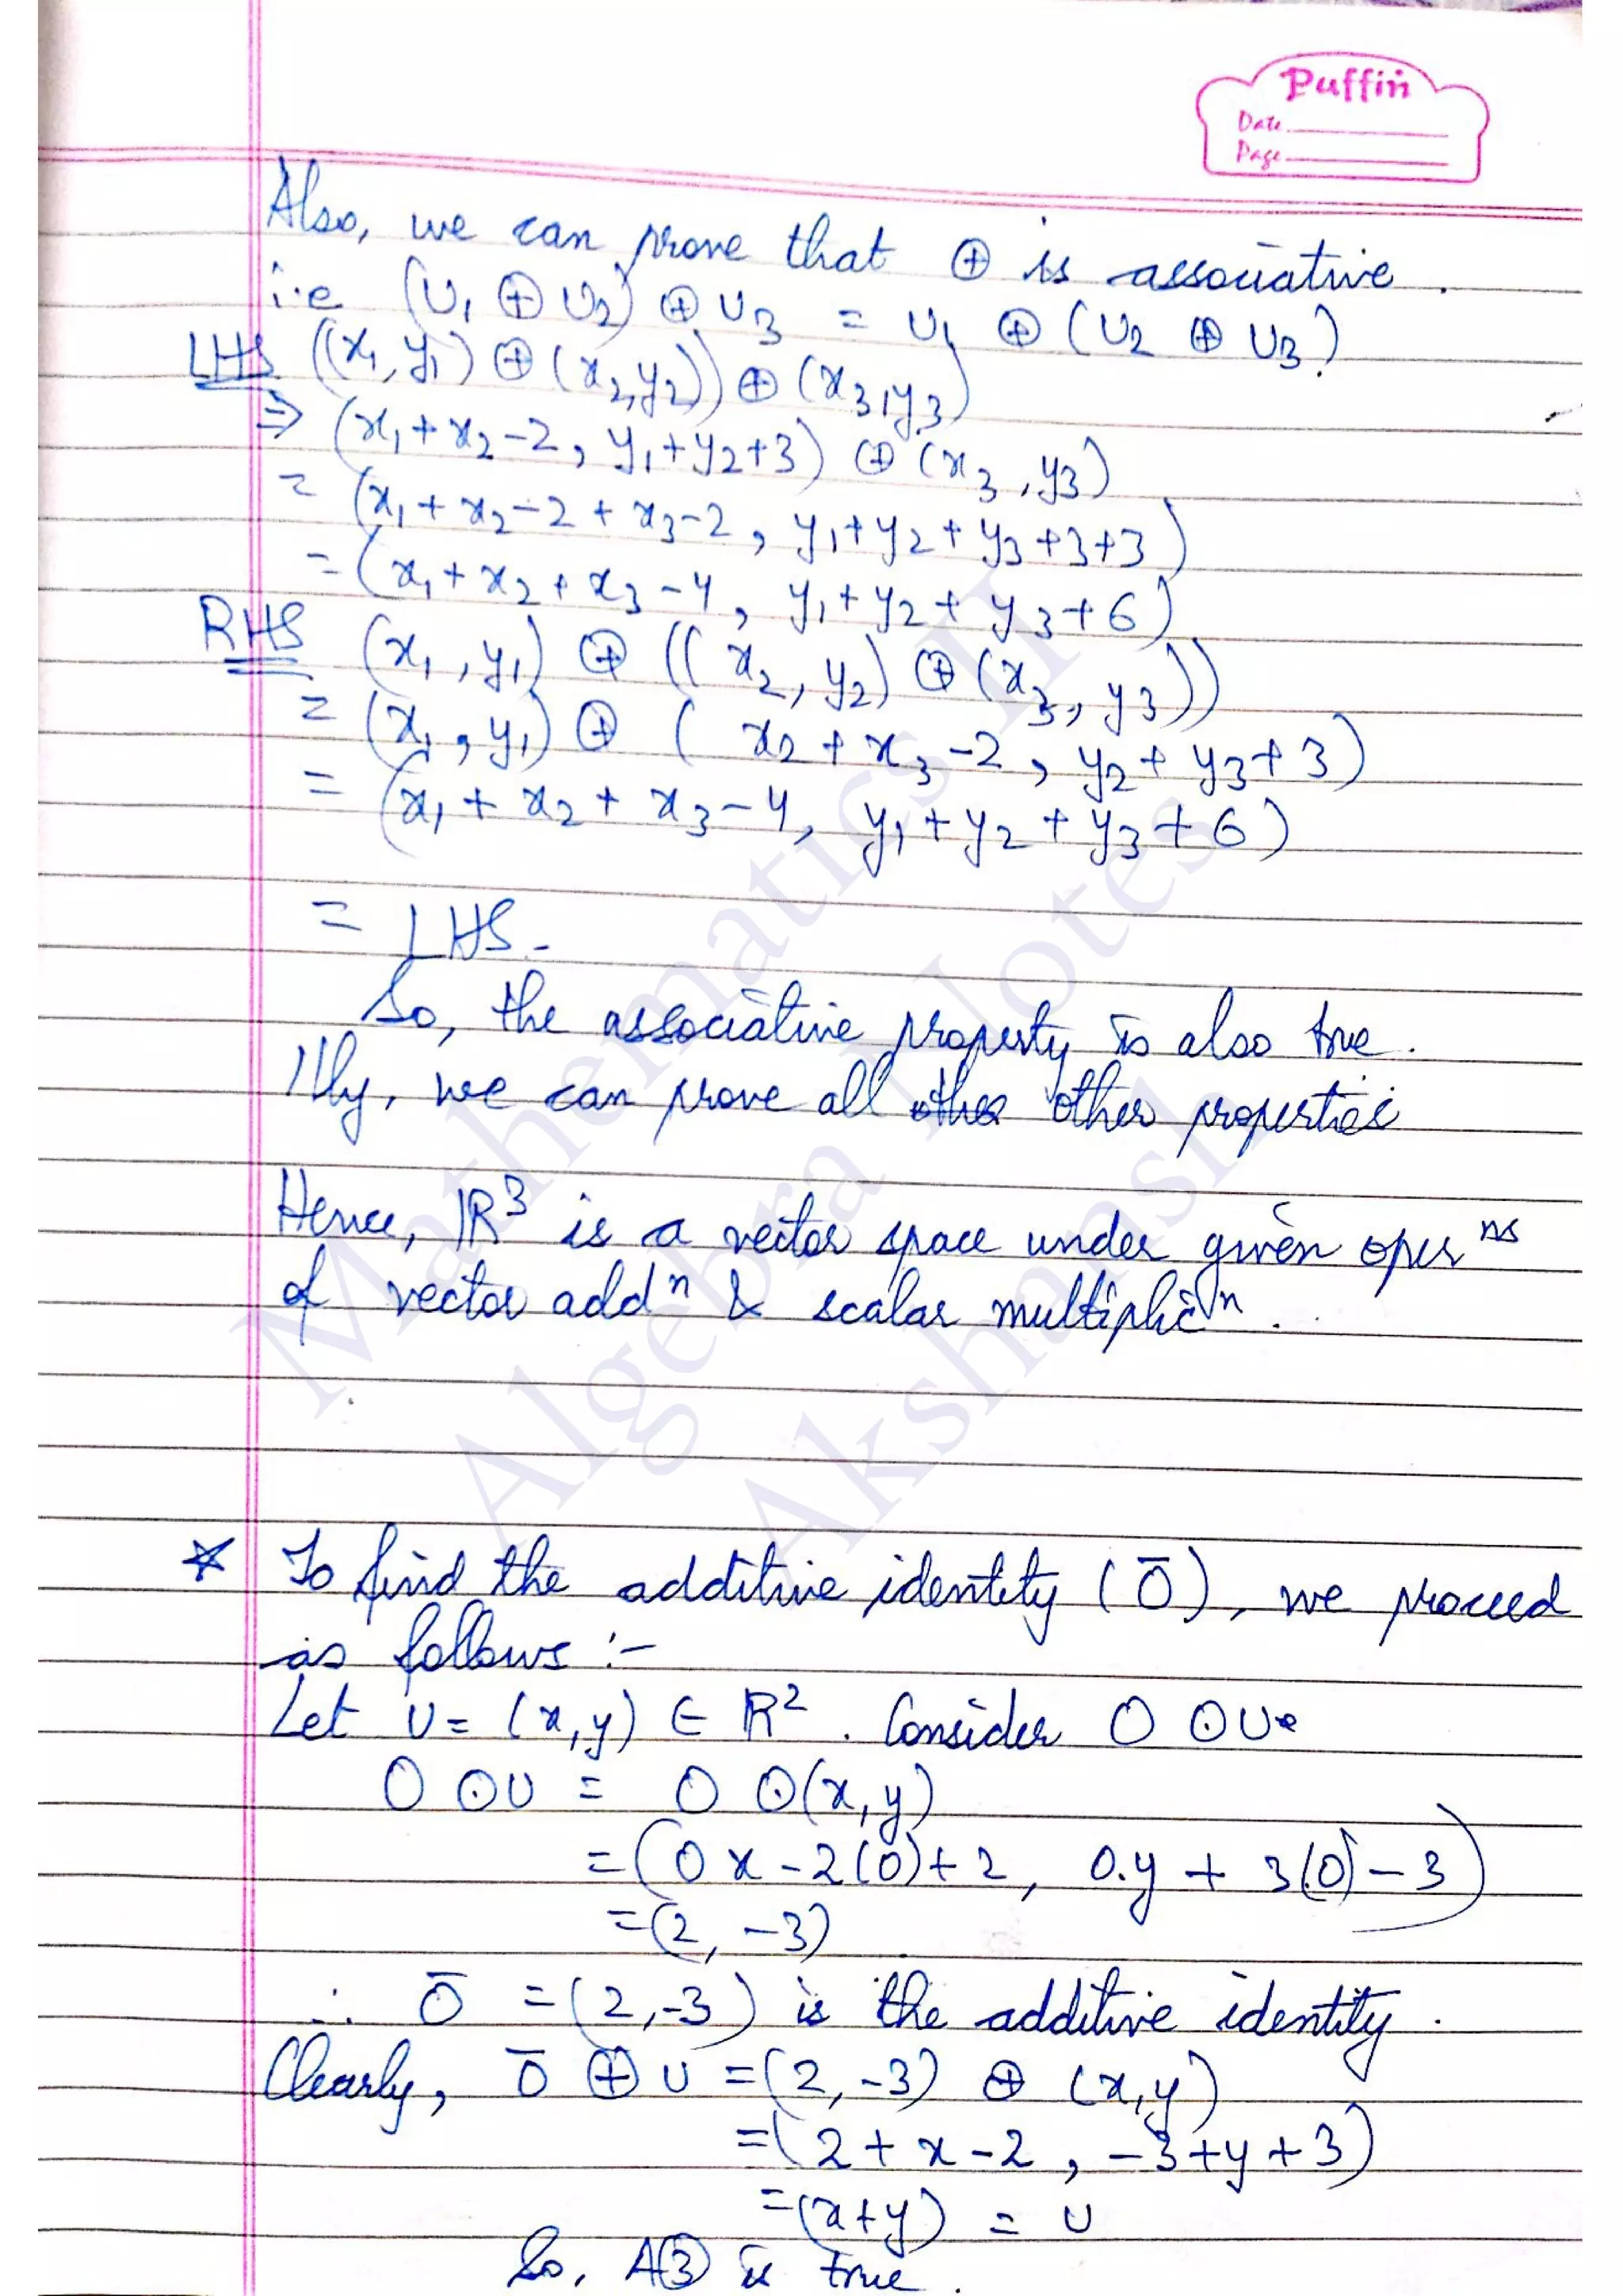 Puffin
Date
Page
Also, we can prove that ⊕ is associative.
i.e (U₁ ⊕ U₂) ⊕ U₃ = U₁ ⊕ (U₂ ⊕ U₃)
LHS ((x₁, y₁) ⊕ (x₂, y₂)) ⊕ (x₃, y₃)
⇒ (x₁ + x₂ - 2, y₁ + y₂ + 3) ⊕ (x₃, y₃)
= (x₁ + x₂ - 2 + x₃ - 2, y₁ + y₂ + y₃ + 3 + 3)
= (x₁ + x₂ + x₃ - 4, y₁ + y₂ + y₃ + 6)
RHS (x₁, y₁) ⊕ ((x₂, y₂) ⊕ (x₃, y₃))
= (x₁, y₁) ⊕ (x₂ + x₃ - 2, y₂ + y₃ + 3)
= (x₁ + x₂ + x₃ - 4, y₁ + y₂ + y₃ + 6)
= LHS.
So, the associative property is also true.
Illy, we can prove all other other properties
Hence, ℝ³ is a vector space under given operⁿˢ
of vector addⁿ & scalar multiplicⁿ.
* To find the additive identity (Ō), we proceed
as follows :-
Let U = (x, y) ∈ ℝ². Consider 0 ⊙ U.
0 ⊙ U = 0 ⊙ (x, y)
= (0x - 2(0) + 2, 0.y + 3(0) - 3)
= (2, -3)
∴ Ō = (2, -3) is the additive identity.
Clearly, Ō ⊕ U = (2, -3) ⊕ (x, y)
= (2 + x - 2, -3 + y + 3)
= (x + y) = U
So, A③ is true.
Mathematics II
Algebra Notes
Akshansh